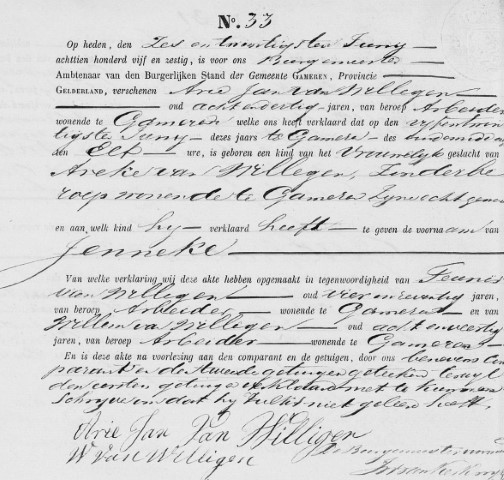 No. 33
Op heden, den Zes en twintigsten Juny
achttien honderd vijf en zestig, is voor ons Burgemeester
Ambtenaar van den Burgerlijken Stand der Gemeente GAMEREN, Provincie
GELDERLAND, verschenen Arie Jan van Willegen
oud acht en dertig jaren, van beroep Arbeider
wonende te Gameren welke ons heeft verklaard dat op den vyf en twin
tigste Juny dezes jaars te Gameren des
ten Elf ure, is geboren een kind van het Vrouwelyk geslacht van
van Willegen, Zonder be
roep wonende te Gameren Zyne echtgenoote
en aan welk kind hy verklaard heeft te geven de voornaam van
Jenneke
Van welke verklaring wij deze akte hebben opgemaakt in tegenwoordigheid van Teunis
van Willegen oud vier en zeventig jaren
van beroep Arbeider wonende te Gameren en van
Willem van Willegen oud acht en veertig
jaren, van beroep Arbeider wonende te Gameren
En is deze akte na voorlezing aan den comparant en de getuigen, door ons benevens Com
parant en den tweede getuige geteekend terwyl
den eersten getuige verklaarde niet te kunnen
Schryven omdat hy zulks niet geleerd heeft.
Arie Jan Van Willigen
W Van Willigen
De Burgemeester voornoemd